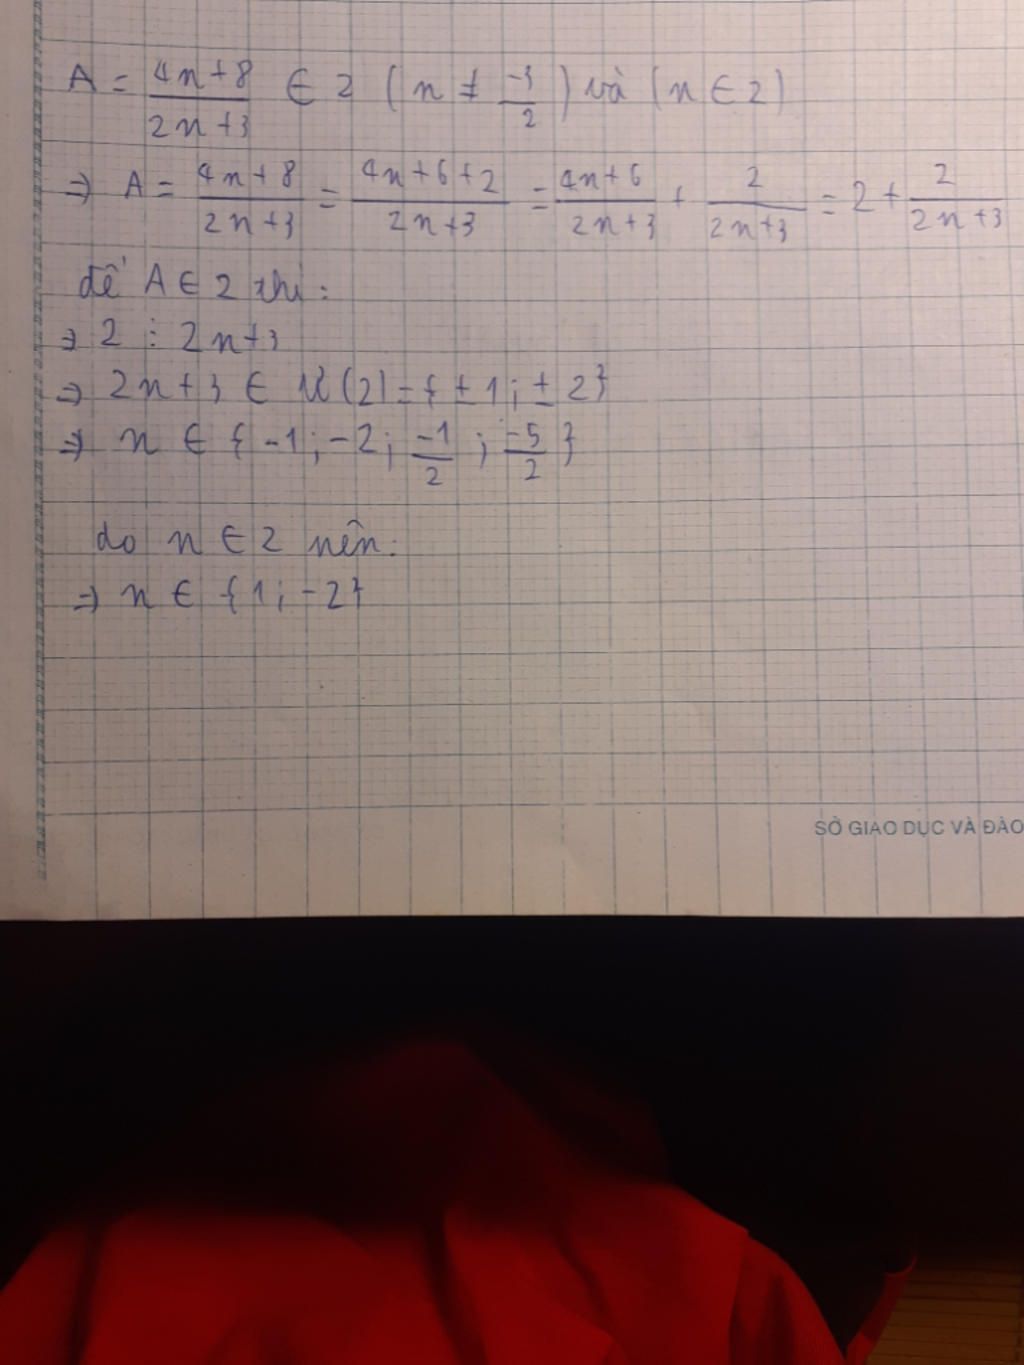 A = \frac{4n+8}{2n+3} ∈ Z (n ≠ \frac{-3}{2}) và (n ∈ Z)
⇒ A = \frac{4n+8}{2n+3} = \frac{4n+6+2}{2n+3} = \frac{4n+6}{2n+3} + \frac{2}{2n+3} = 2 + \frac{2}{2n+3}
để A ∈ Z thì:
⇒ 2 ⋮ 2n+3
⇒ 2n+3 ∈ Ư(2) = {±1; ±2}
⇒ n ∈ {-1; -2; \frac{-1}{2}; \frac{-5}{2}}
do n ∈ Z nên:
⇒ n ∈ {1; -2}
SỞ GIAO DỤC VÀ ĐÀO